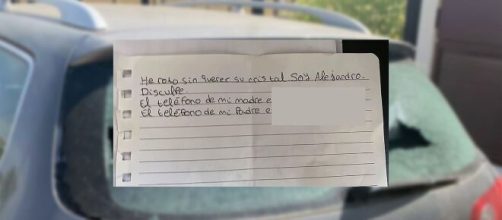 He roto sin querer su cristal Soy Alejandro.
Disculpe
El teléfono de mi madre e
El teléfono de mi Padre e